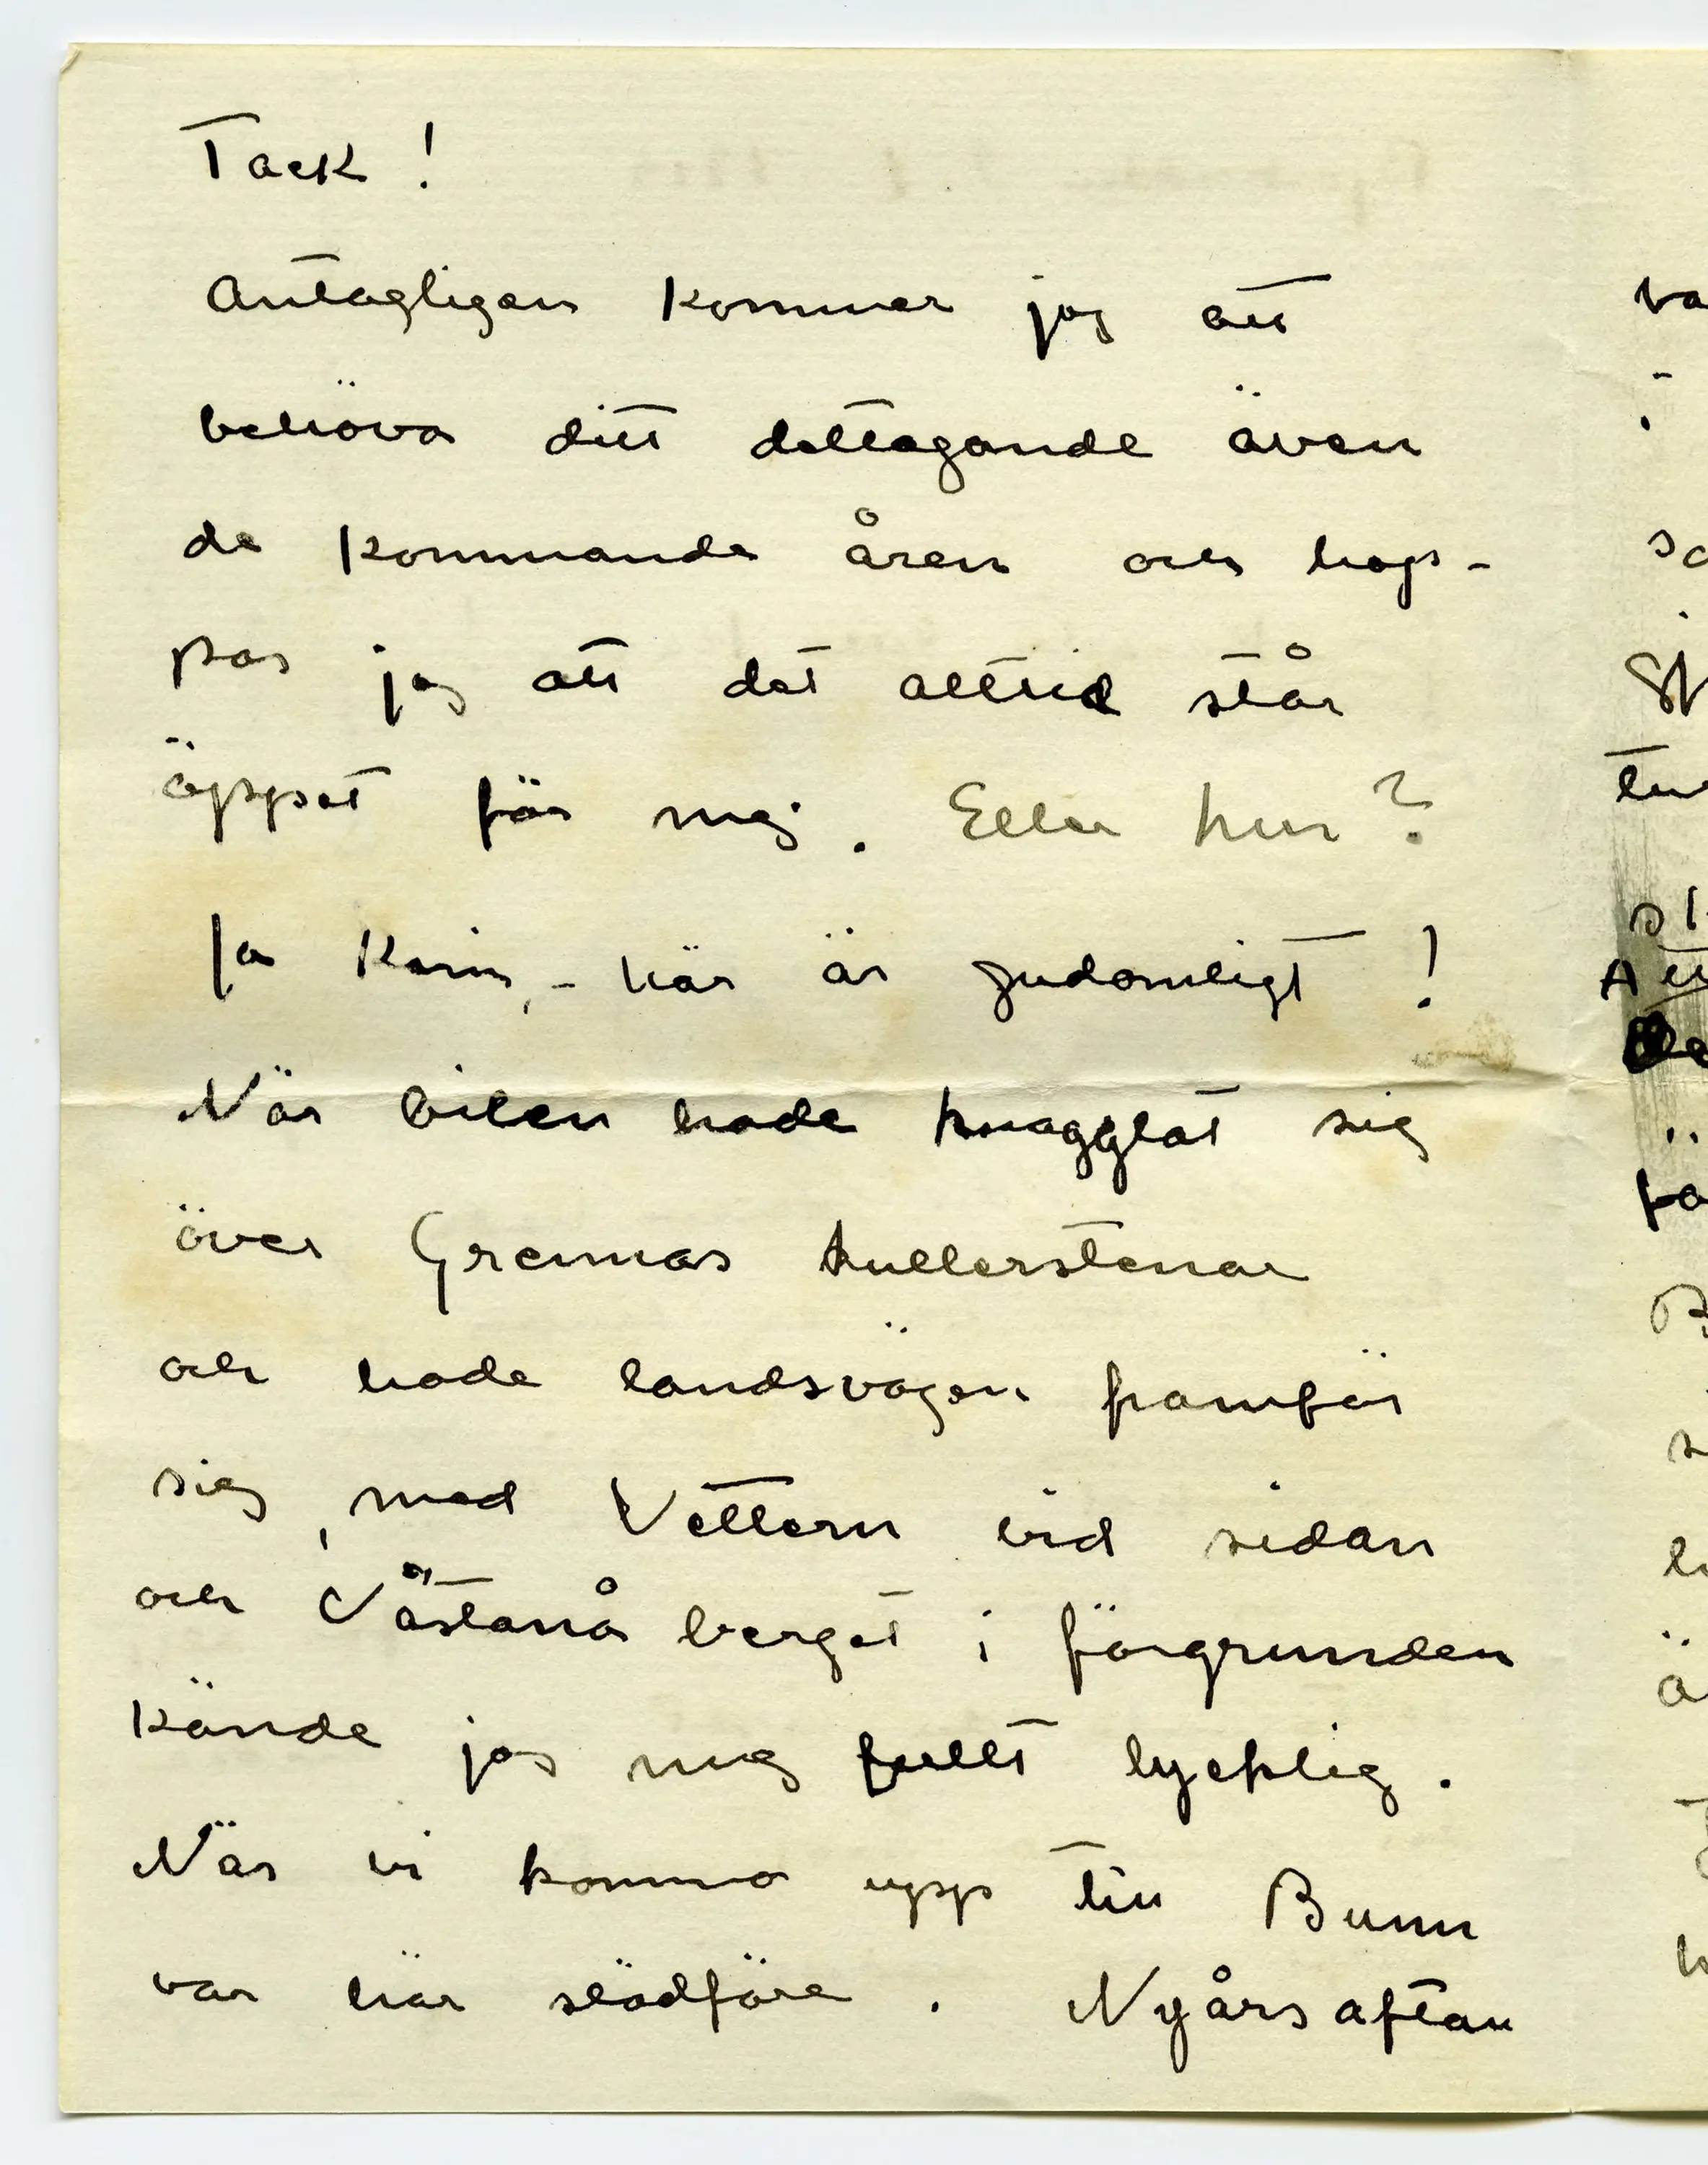 Tack!
Antagligen kommer jag att
behöva ditt deltagande även
de kommande åren och hop-
pas jag att det alltid står
öppet för mej. Eller hur?
Ja Karin, - här är gudomligt!
När bilen hade knagglat sig
över Grennas kullerstenar
och hade landsvägen framför
sig, med Vettern vid sidan
och Västanå berget i förgrunden
kände jag mig fullt lycklig.
När vi kommo upp till Bunn
var här slädföre. Nyårsaftan